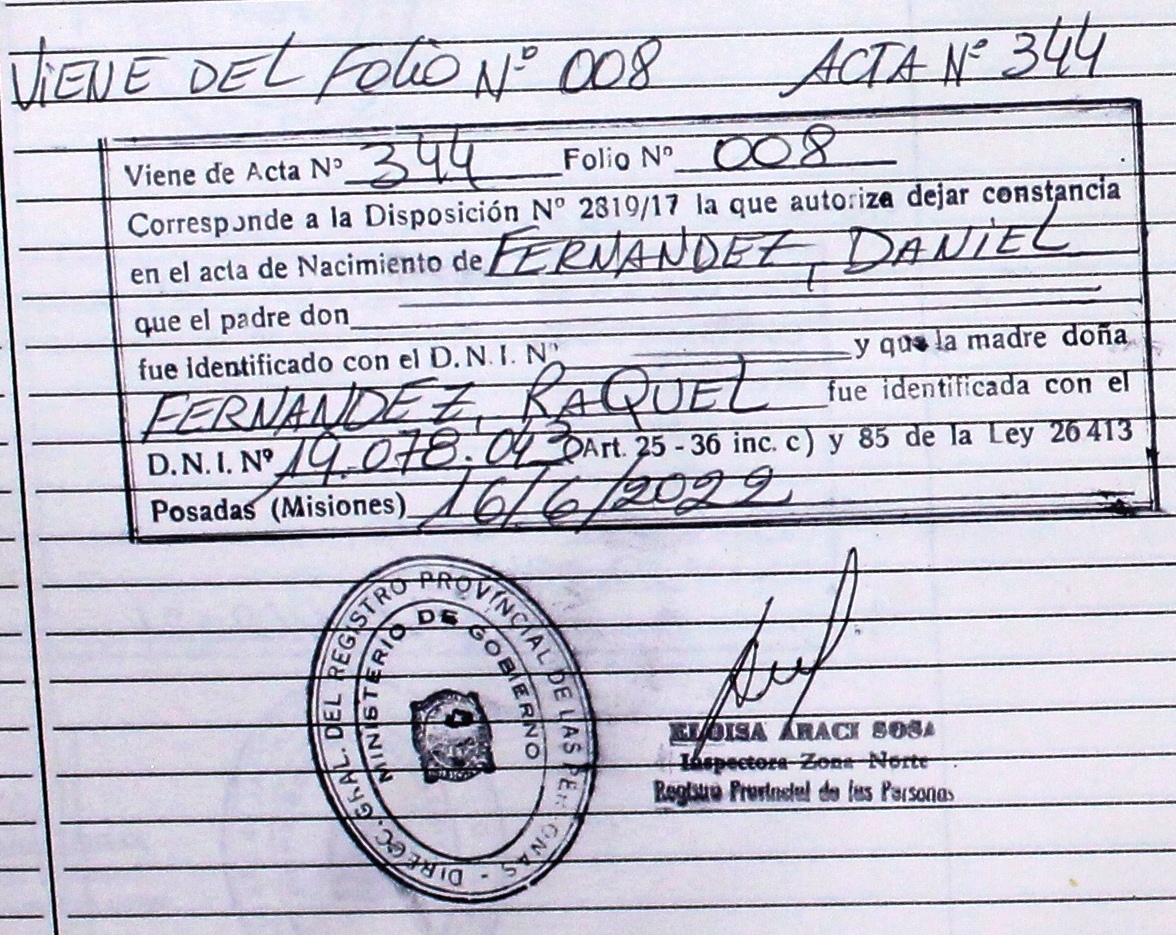 VIENE DEL FOLIO Nº 008 ACTA Nº 344
Viene de Acta Nº 344 Folio Nº 008
Corresponde a la Disposición Nº 2819/17 la que autoriza dejar constancia
en el acta de Nacimiento de FERNANDEZ, DANIEL
que el padre don
fue identificado con el D.N.I. Nº y que la madre doña
FERNANDEZ, RAQUEL fue identificada con el
D.N.I. Nº 19.078.043 Art. 25 - 36 inc. c) y 85 de la Ley 26413
Posadas (Misiones) 16/6/2022
DIREC. GRAL. DEL REGISTRO PROVINCIAL DE LAS PERSONAS -
MINISTERIO DE GOBIERNO
ELOISA ARACI SOSA
Inspectora Zona Norte
Registro Provincial de las Personas